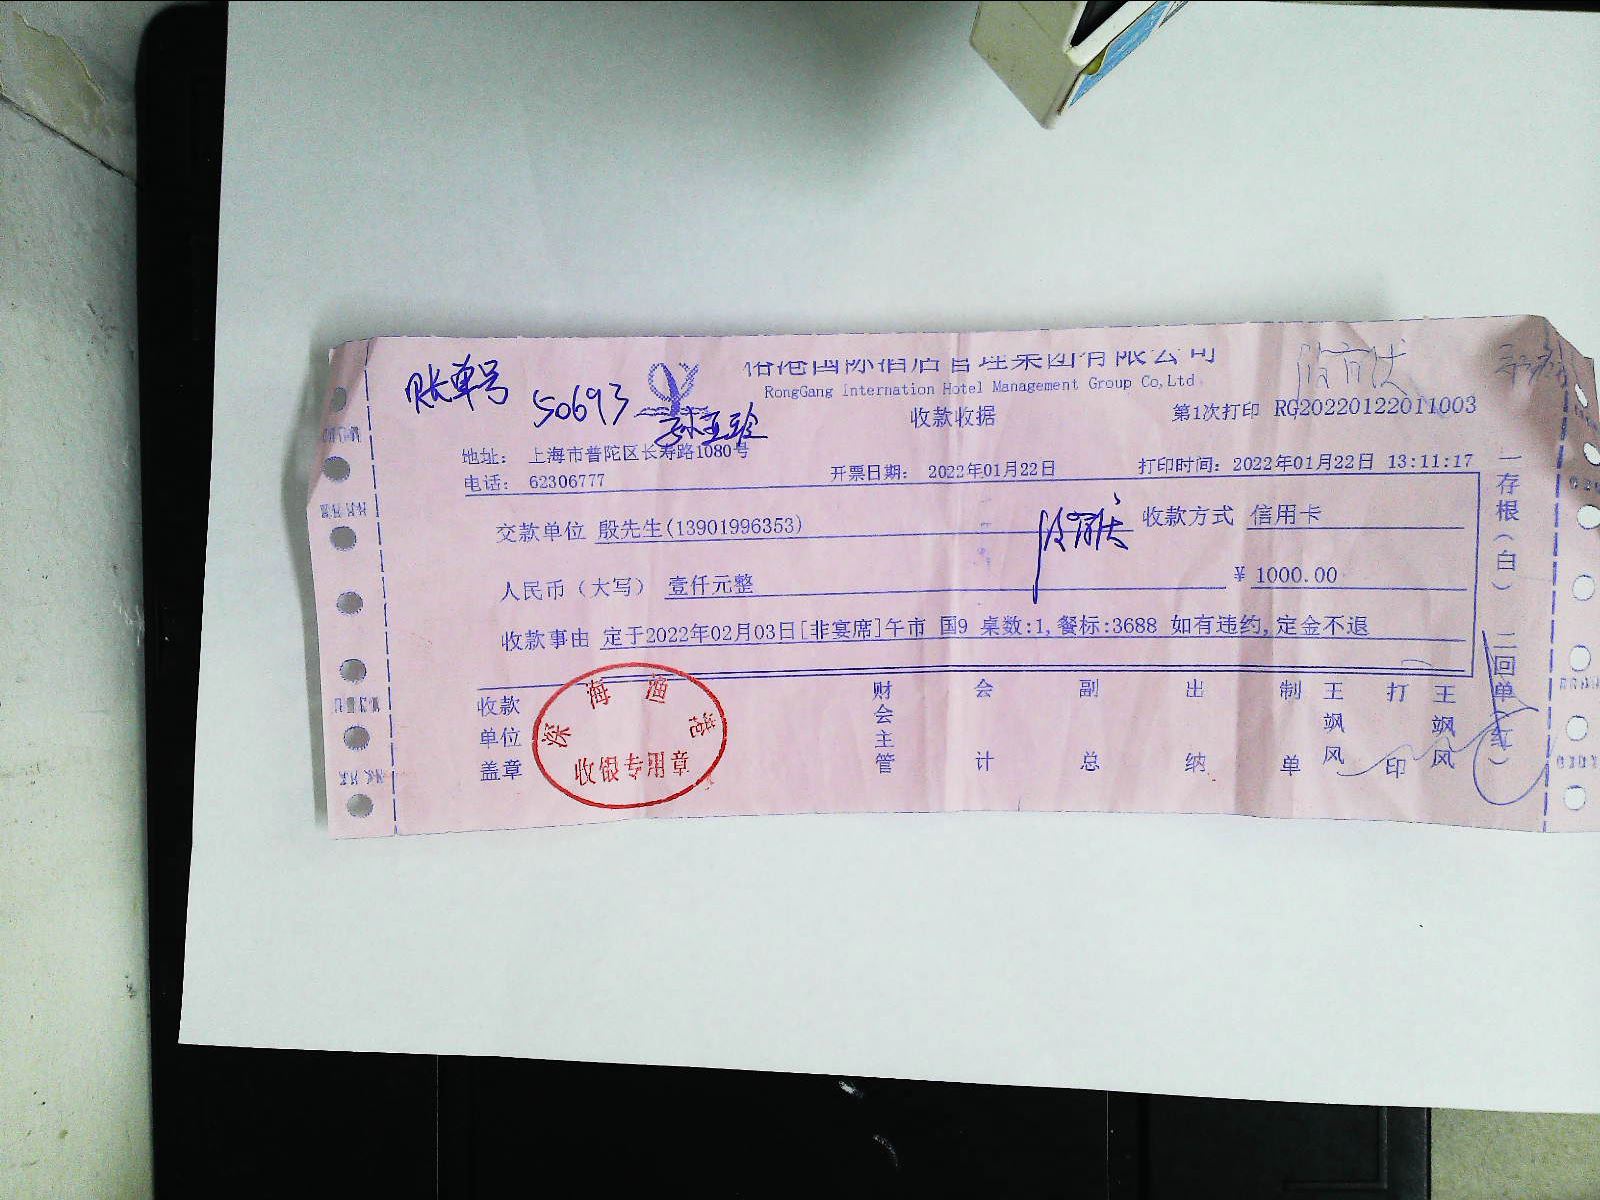 账单号 50693
国际酒店管理集团有限公司
RongGang Internation Hotel Management Group Co,Ltd
收款收据
第1次打印 RG20220122011003
地址： 上海市普陀区长寿路1080号
电话： 62306777 开票日期： 2022年01月22日 打印时间：2022年01月22日 13:11:17
交款单位 殷先生(13901996353) 收款方式 信用卡
人民币（大写） 壹仟元整 ¥ 1000.00
收款事由 定于2022年02月03日[非宴席]午市 国9 桌数:1,餐标:3688 如有违约,定金不退
收款单位盖章 财会主管 会计 副总 出纳 制单 王飒风 打印 王飒风
深海渔
收银专用章
一存根（白） 二回单（红）